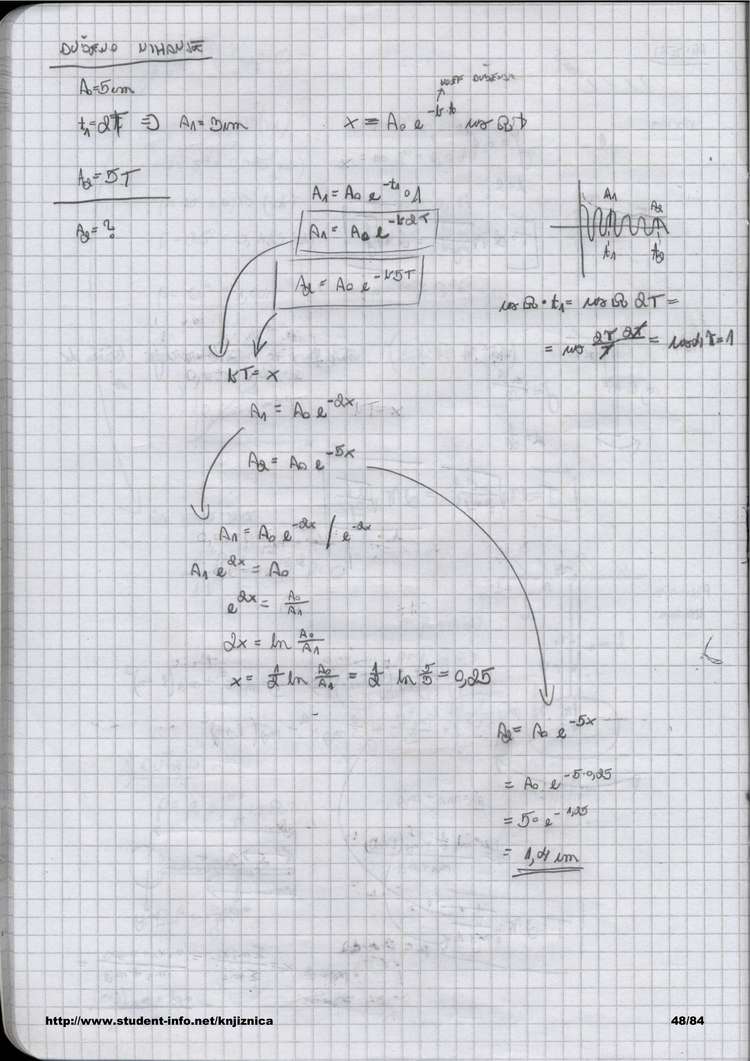 DUŠENO NIHANJE
A₀ = 5 cm
t₁ = 2T ⇒ A₁ = 3 cm
DUŠENJA
x = A₀ e^-k·t cos ω t
A₂ = 5T
A₂ = ?
A₁ = A₀ e^-t₁ · 1
A₁ = A₀ e^-k2T
A₂ = A₀ e^-k5T
A₁
A₂
t₁
t₂
cos ω · t₁ = cos ω 2T =
= cos 2π 2T / T = cos 4π = 1
kT = x
A₁ = A₀ e^-2x
A₂ = A₀ e^-5x
A₁ = A₀ e^-2x / e^-2x
A₁ e^2x = A₀
e^2x = A₀/A₁
2x = ln A₀/A₁
x = 1/2 ln A₀/A₁ = 1/2 ln = 0,25
A₂ = A₀ e^-5x
= A₀ e^-5·0,25
= 5 · e^-1,25
= 1,4 cm
http://www.student-info.net/knjiznica
48/84